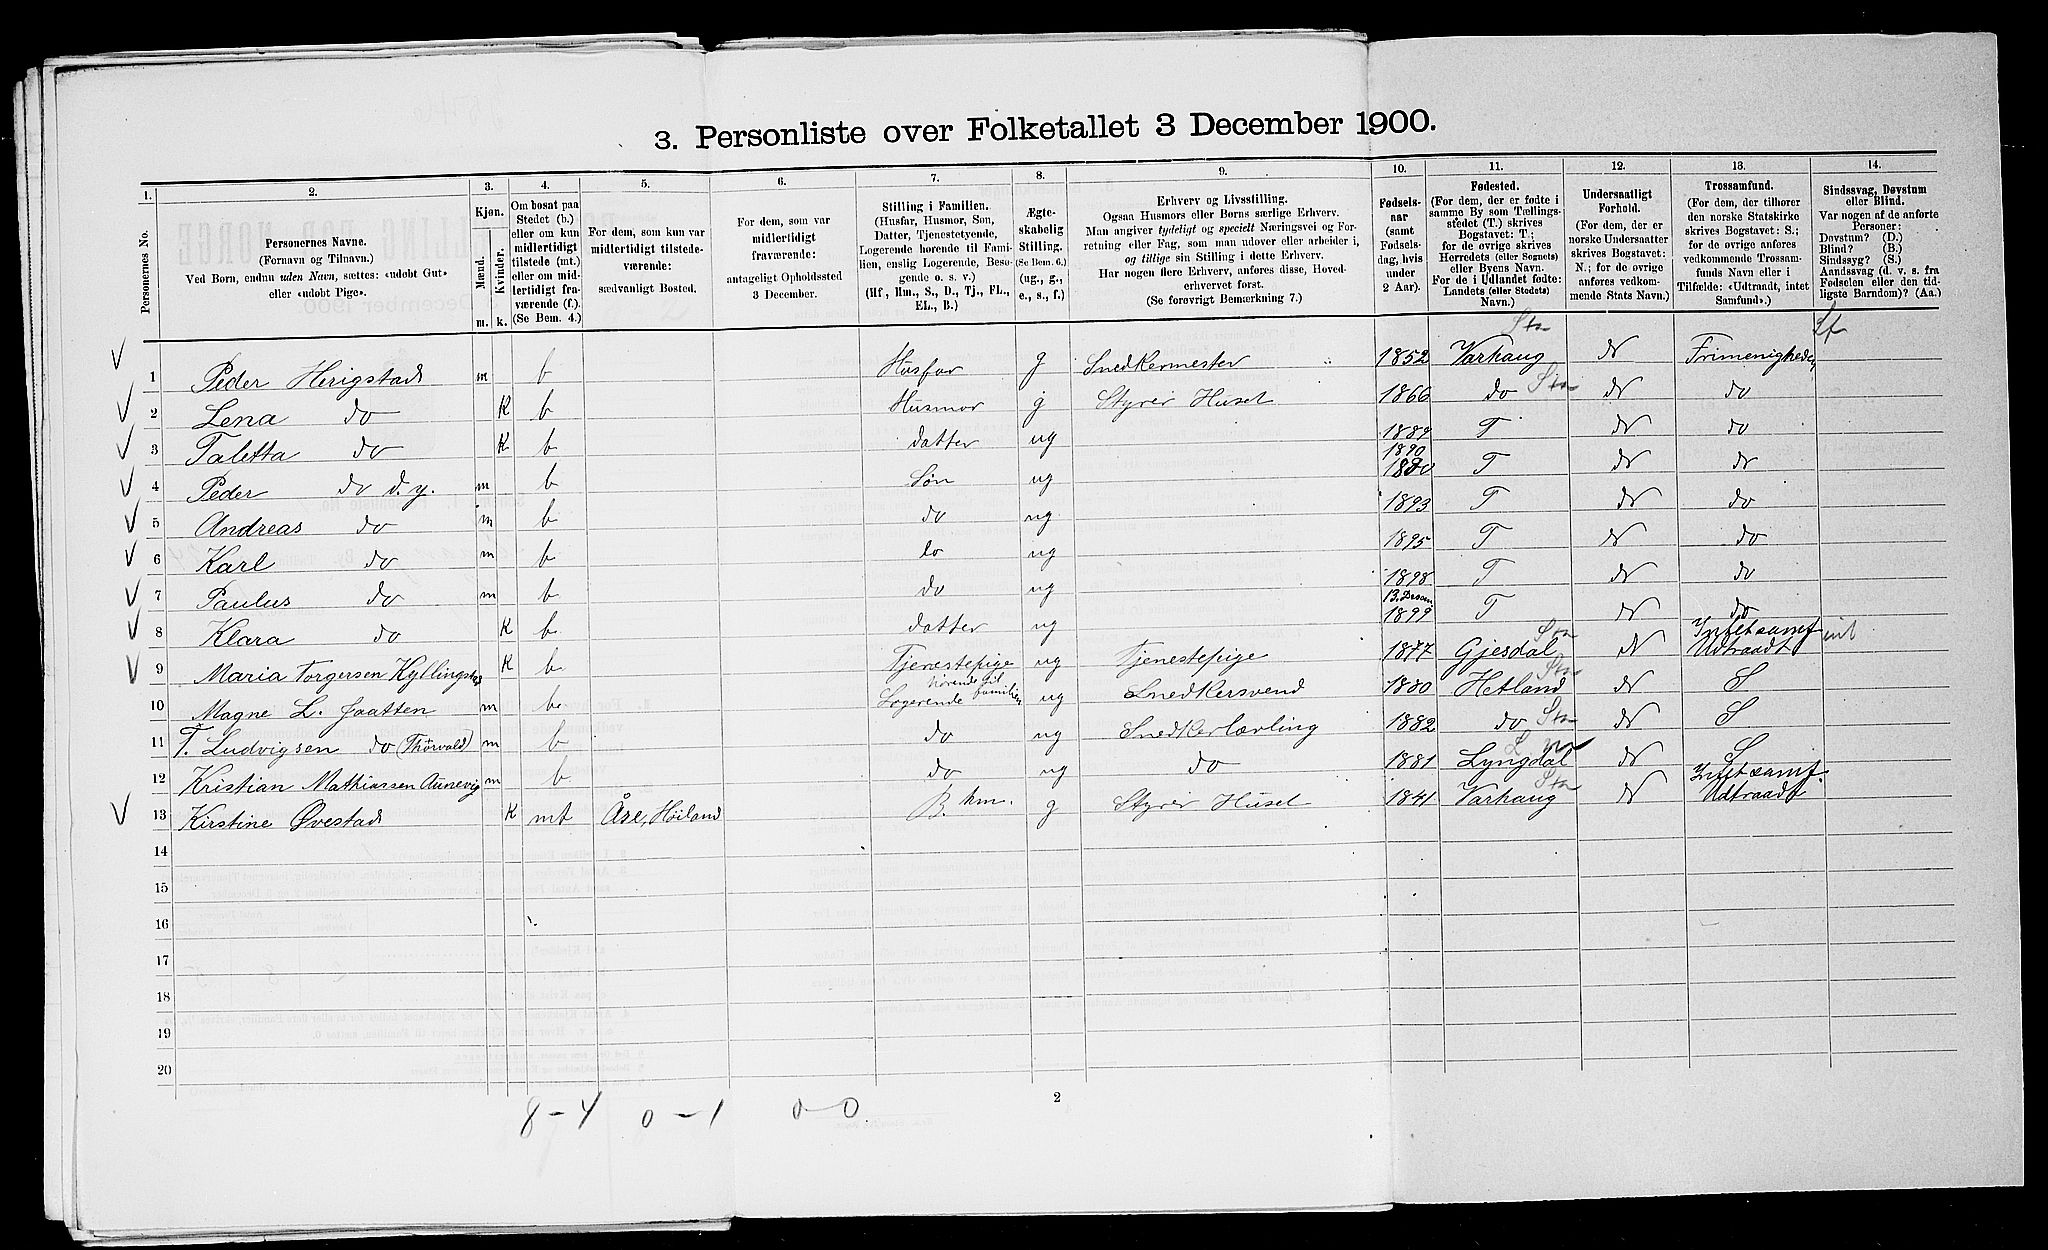 3. Personliste over Folketallet 3 December 1900.
1. 2. 3. 4. 5. 6. 7. 8. 9. 10. 11. 12. 13. 14.
Personernes No.
Personernes Navne.
(Fornavn og Tilnavn.)
Ved Børn, endnu uden Navn, sættes: «udøbt Gut»
eller «udøbt Pige».
Kjøn.
Mænd. Kvinder.
m. k.
Om bosat paa
Stedet (b.)
eller om kun
midlertidigt
tilstede (mt.)
eller om mid-
lertidigt fra-
værende (f.).
(Se Bem. 4.)
For dem, som kun var
midlertidigt tilstede-
værende:
sædvanligt Bosted.
For dem, som var
midlertidigt
fraværende:
antageligt Opholdssted
3 December.
Stilling i Familien.
(Husfar, Husmor, Søn,
Datter, Tjenestetyende,
Logerende hørende til Fami-
lien, enslig Logerende, Besø-
gende o. s. v.)
(Hf., Hm., S., D., Tj., FL.,
EL., B.)
Ægte-
skabelig
Stilling.
(Se Bem. 6.)
(ug., g.,
e., s., f.)
Erhverv og Livsstilling.
Ogsaa Husmors eller Børns særlige Erhverv.
Man angiver tydeligt og specielt Næringsvei og For-
retning eller Fag, som man udøver eller arbeider i,
og tillige sin Stilling i dette Erhverv.
Har nogen flere Erhverv, anføres disse, Hoved-
erhvervet først.
(Se forøvrigt Bemærkning 7.)
Fødsels-
aar
(samt
Fødsels-
dag, hvis
under
2 Aar).
Fødested.
(For dem, der er fødte i
samme By som Tællings-
stedet (T.) skrives
Bogstavet: T.;
for de øvrige skrives
Herredets (eller Sognets)
eller Byens Navn.
For de i Udlandet fødte:
Landets (eller Stedets)
Navn.)
Undersaatligt
Forhold.
(For dem, der er
norske Undersaatter
skrives Bogstavet:
N.; for de øvrige
anføres vedkom-
mende Stats Navn.)
Trossamfund.
(For dem, der tilhører
den norske Statskirke
skrives Bogstavet: S.;
for de øvrige anføres
vedkommende Trossam-
funds Navn eller i
Tilfælde: «Udtraadt, intet
Samfund».)
Sindssvag, Døvstum
eller Blind.
Var nogen af de anførte
Personer:
Døvstum? (D.)
Blind? (B.)
Sindssyg? (S.)
Aandssvag (d. v. s. fra
Fødselen eller den tid-
ligste Barndom)? (Aa.)
1 Peder Herigstad m b Husfar g Snedkermester 1852 Varhaug N Frimenigheden
2 Lena do K b Husmor g Styrer Huset 1866 do N do
3 Taletta do K b datter ug 1889 T N do
4 Peder do d.y. m b Søn ug 1890 T N do
5 Andreas do m b do ug 1893 T N do
6 Karl do m b do ug 1895 T N do
7 Paulus do m b do ug 1898 T N do
8 Klara do K b datter ug 13. Desem 1899 T N do
9 Maria Torgersen Kyllingstad K b Tjenestepige ug Tjenestepige 1877 Gjesdal N Intet samf Udtraadt
10 Magne L. Jaatten m b Logerende hørende til familien ug Snedkersvend 1880 Hetland N S
11 T. Ludvigsen do (Thorvald) m b do ug Snedkerlærling 1882 do N S
12 Kristian Mathiassen Aunevig m b do ug do 1881 Lyngdal N S
13 Kirstine Øvestad K mt Åse, Høiland B. hm. g Styrer Huset 1841 Varhaug N Intet samf. Udtraadt
14
15
16
17
18
19
20
2
8-4 0-1 0-0